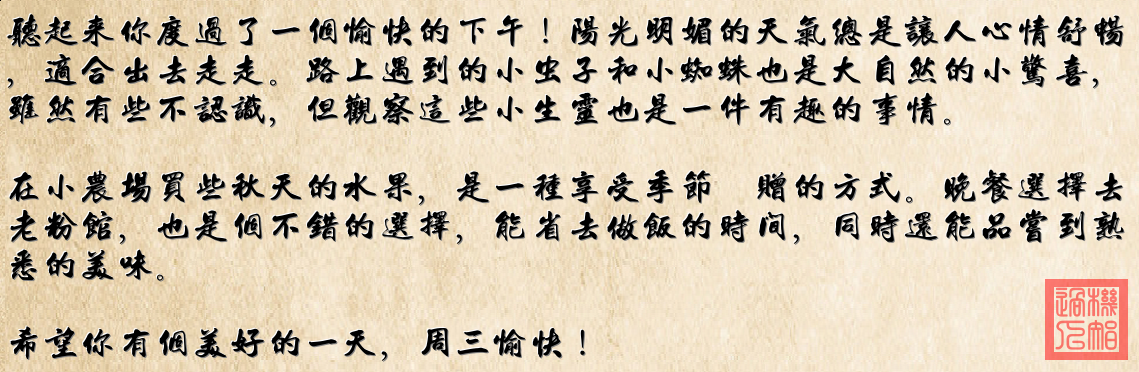 聽起来你度過了一個愉快的下午！陽光明媚的天氣總是讓人心情舒暢
，適合出去走走。路上遇到的小虫子和小蜘蛛也是大自然的小驚喜，
雖然有些不認識，但觀察這些小生靈也是一件有趣的事情。
在小農場買些秋天的水果，是一種享受季節 贈的方式。晚餐選擇去
老粉館，也是個不錯的選擇，能省去做飯的時间，同時還能品嘗到熟
悉的美味。
希望你有個美好的一天，周三愉快！